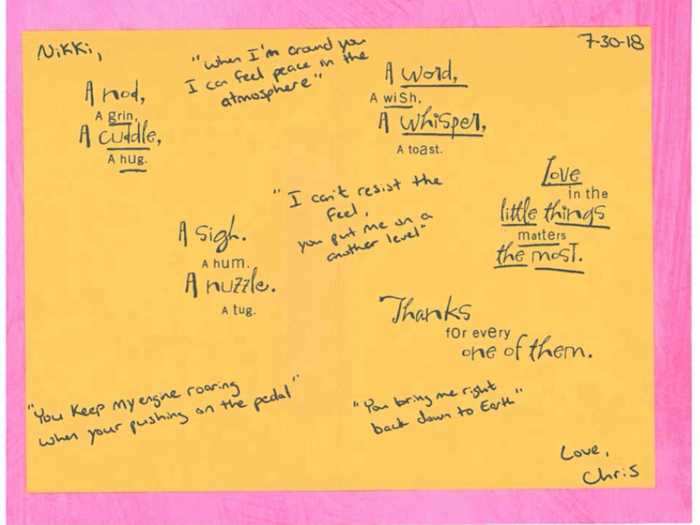 Nikki,
7-30-18
"when I'm around you
I can feel peace in the
atmosphere"
A nod,
A grin,
A cuddle,
A hug.
A word,
A wish,
A whisper,
A toast.
"I can't resist the
feel,
you put me on a
another level"
Love
in the
little things
matters
the most.
A sigh.
A hum.
A nuzzle.
A tug.
Thanks
for every
one of them.
"You keep my engine roaring
when your pushing on the pedal"
"You bring me right
back down to Earth"
Love,
Chris